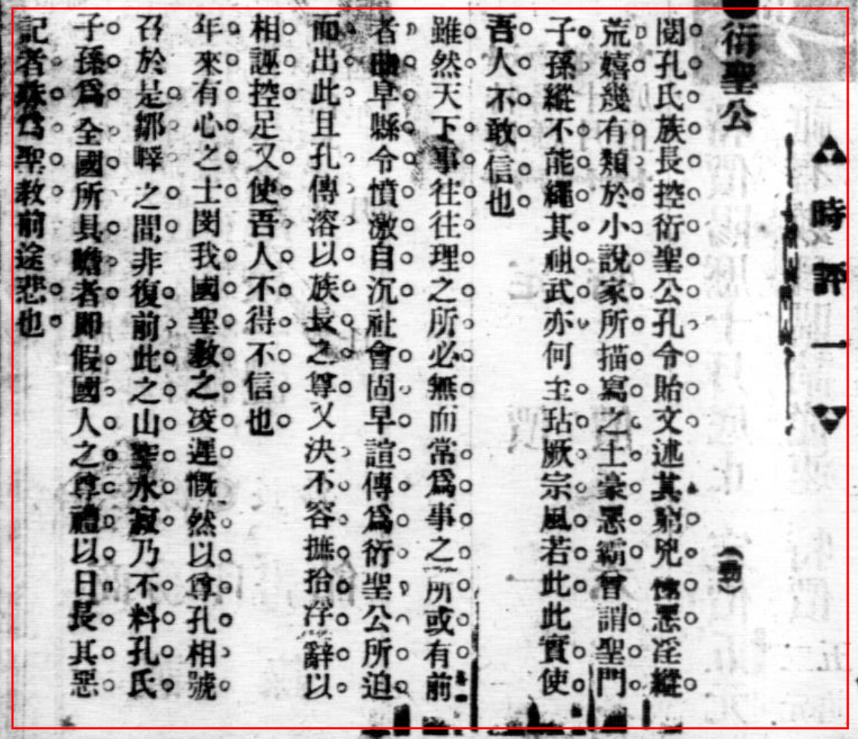 時評一
衍聖公
(勳)
閱孔氏族長控衍聖公孔令貽文述其窮兇極惡淫縱
荒嬉幾有類於小說家所描寫之土豪惡霸曾謂聖門
子孫縱不能繩其祖武亦何至玷厥宗風若此此實使
吾人不敢信也
雖然天下事往往理之所必無而常爲事之所或有前
者曲阜縣令憤激自沉社會固早諠傳爲衍聖公所迫
而出此且孔傳溶以族長之尊又決不容摭拾浮辭以
相誣控足又使吾人不得不信也
年來有心之士閔我國聖教之凌遲慨然以尊孔相號
召於是鄒嶧之間非復前此之山聖水寂乃不料孔氏
子孫爲全國所具瞻者卽假國人之尊禮以日長其惡
記者殊爲聖教前途悲也